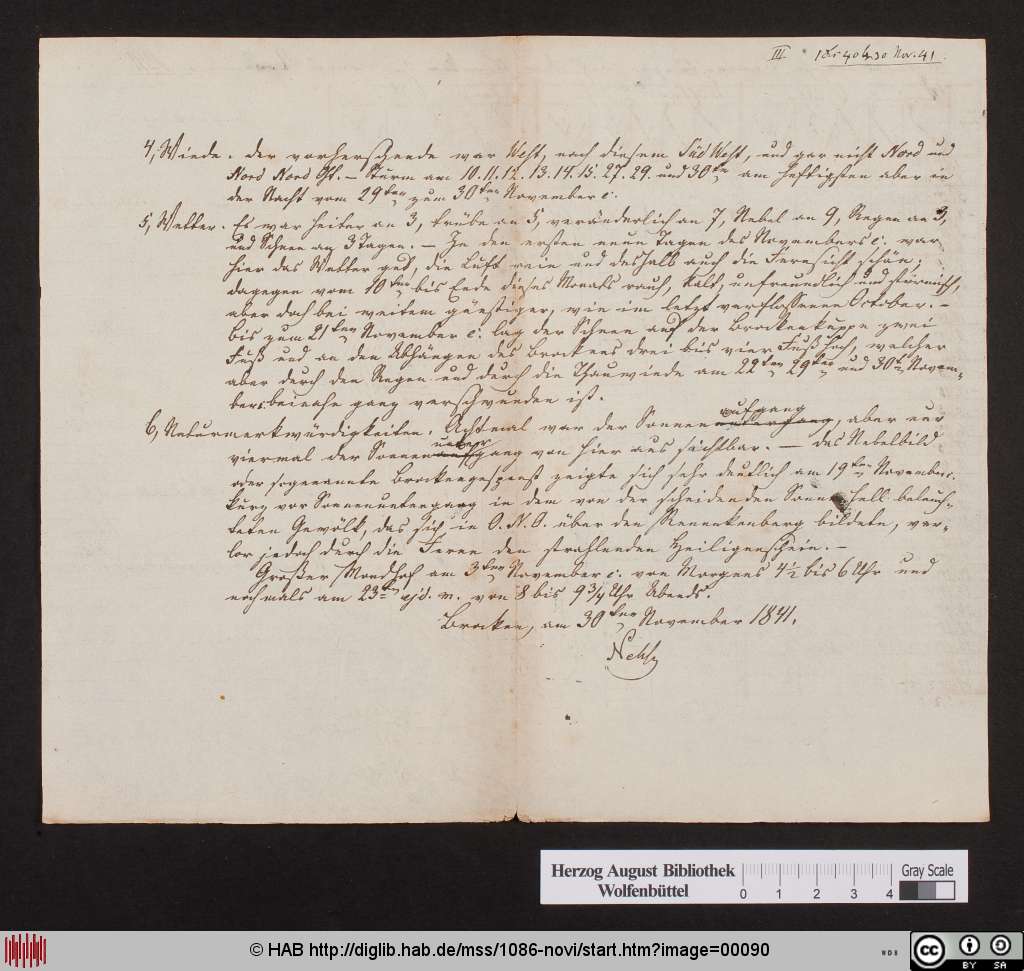 III. 40 30 Nov. 41.
4, Winde. der vorherschende war West, nach diesem Süd West, und gar nicht Nord und
Nord Nord Ost. — Sturm am 10. 11. 12. 13. 14. 15. 27. 29. und 30ten am heftigsten aber in
der Nacht vom 29ten zum 30ten November c.
5, Wetter. Es war heiter an 3, trübe an 5, veränderlich an 7, Nebel an 9, Regen an 3,
und Schnee an 3 Tagen. — In den ersten neun Tagen des Novembers c. war
hier das Wetter gut, die Luft rein und deshalb auch die Fernsicht schön;
dagegen vom 10ten bis Ende dieses Monats rauh, kalt, unfreundlich und stürmisch,
aber doch bei weitem günstiger, wie im letzt verflossenen October. —
Bis zum 21ten November c. lag der Schnee auf der Brockenkuppe zwei
Fuß und an den Abhängen des Brockens drei bis vier Fuß hoch, welcher
aber durch den Regen und durch die Thauwinde am 22ten 29ten und 30ten Novem-
bers beinahe ganz verschwunden ist.
6, Naturmerkwürdigkeiten. Achtmal war der Sonnenaufgang, aber nur
viermal der Sonnenuntergang von hier aus sichtbar. — Das Nebelbild
oder sogenannte Brockengespenst zeigte sich sehr deutlich am 19ten November
kurz vor Sonnenuntergang in dem von der scheidenden Sonne hell beleuch-
teten Gewölk, das sich in O.N.O. über den Renneckenberg bildete, ver-
lor jedoch durch die Ferne den strahlenden Heiligenschein. —
Großer Mondhof am 3ten November c. von Morgens 4½ bis 6 Uhr und
nochmals am 23ten ejd. m. von 8 bis 9¾ Uhr Abends.
Brocken, am 30ten November 1841.
Nehse
Herzog August Bibliothek
Wolfenbüttel
0 1 2 3 4
Gray Scale
© HAB http://diglib.hab.de/mss/1086-novi/start.htm?image=00090
WDB
cc BY SA